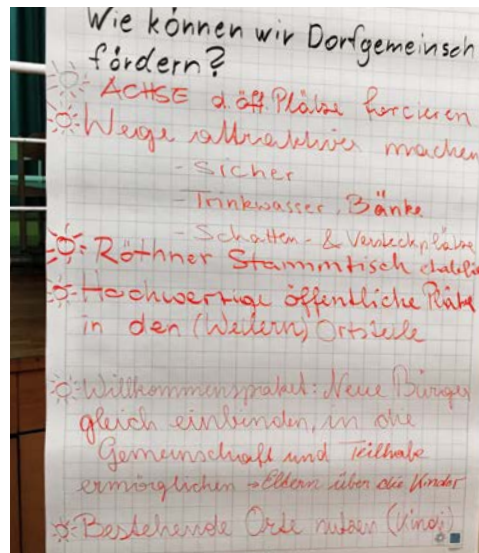 Wie können wir Dorfgemeinsch
fördern?
ACHSE d. öff. Plätze forcieren
Wege attraktiver machen
- Sicher
- Trinkwasser, Bänke
- Schatten- & Versteckplätze
Röthner Stammtisch etablie
Hochwertige öffentliche Plätze
in den (Weilern) Ortsteile
Willkommenspaket: Neue Bürger
gleich einbinden, in die
Gemeinschaft und Teilhabe
ermöglichen → Eltern über die Kinder
Bestehende Orte nutzen (Kindi)